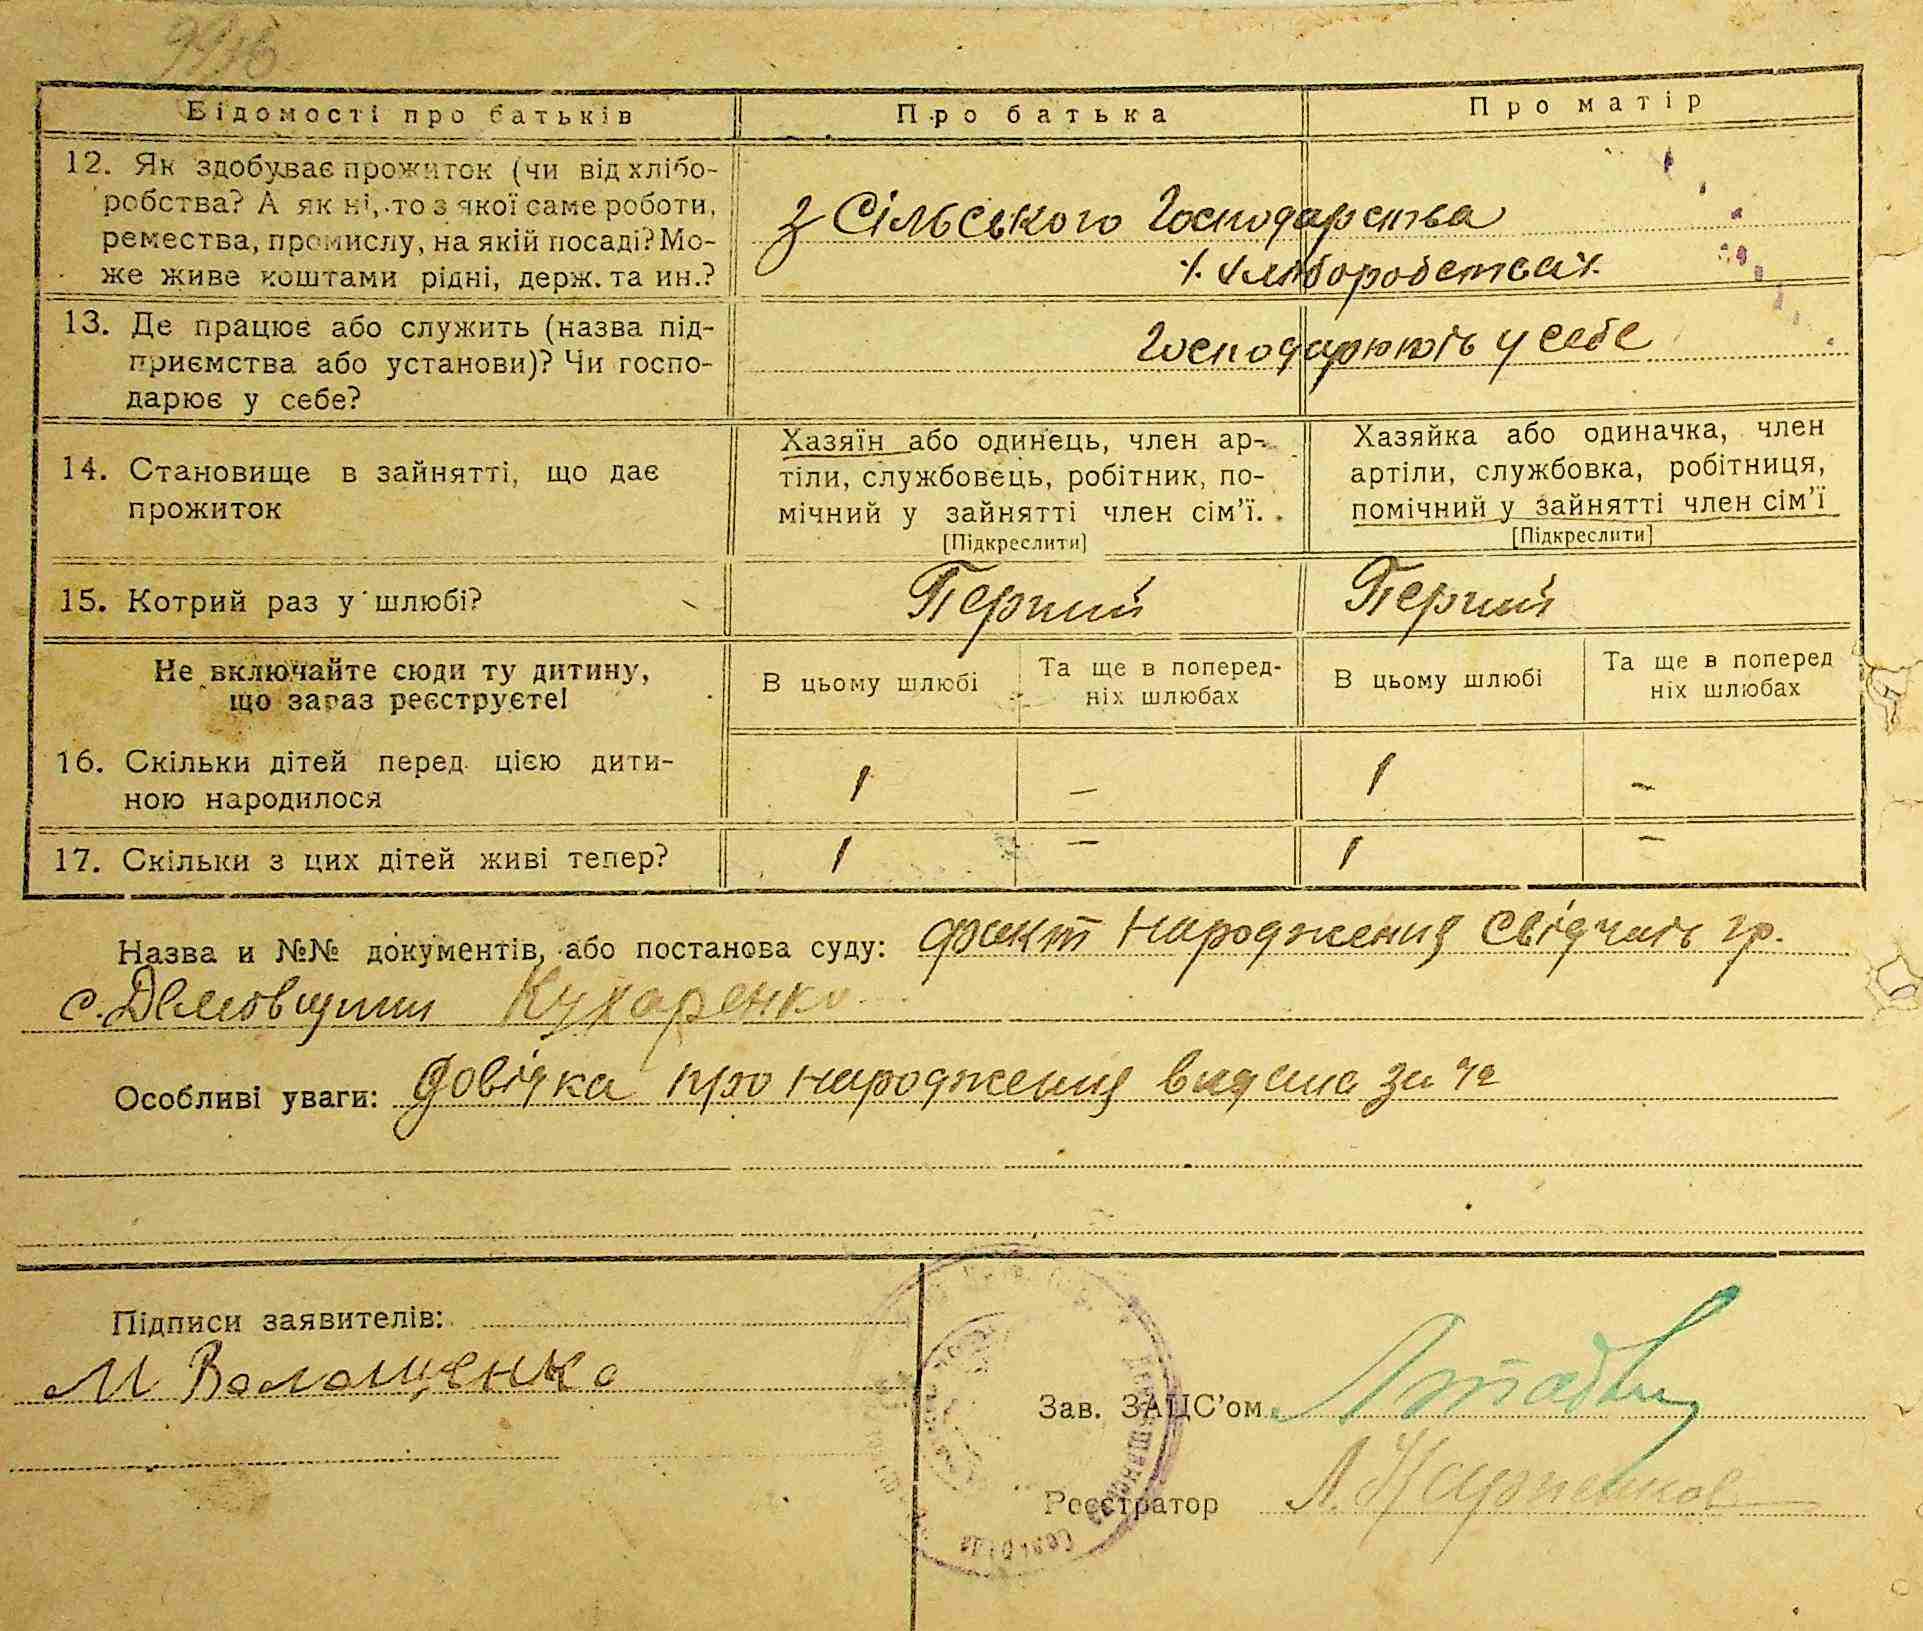 Відомості про батьків
Про батька
Про матір
12. Як здобуває прожиток (чи від хлібо-
робства? А як ні, то з якої саме роботи,
ремества, промислу, на якій посаді? Мо-
же живе коштами рідні, держ. та ин.?
З Сільського Господарства
хліборобства
13. Де працює або служить (назва під-
приємства або установи)? Чи госпо-
дарює у себе?
Господарюють у себе
14. Становище в зайнятті, що дає
прожиток
Хазяїн або одинець, член ар-
тіли, службовець, робітник, по-
мічний у зайнятті член сім'ї.
[Підкреслити]
Хазяйка або одиначка, член
артіли, службовка, робітниця,
помічний у зайнятті член сім'ї
[Підкреслити]
15. Котрий раз у шлюбі?
Перший
Перший
Не включайте сюди ту дитину,
що зараз реєструєте!
В цьому шлюбі
Та ще в поперед-
ніх шлюбах
В цьому шлюбі
Та ще в поперед
ніх шлюбах
16. Скільки дітей перед цією дити-
ною народилося
1 – 1 –
17. Скільки з цих дітей живі тепер?
1 – 1 –
Назва и №№ документів, або постанова суду: факт народження свідчить гр.
с. Кухаренко
Особливі уваги: довідка про народження видана за №
Підписи заявителів:
М Волощенко
Зав. ЗАЦС'ом
Реєстратор